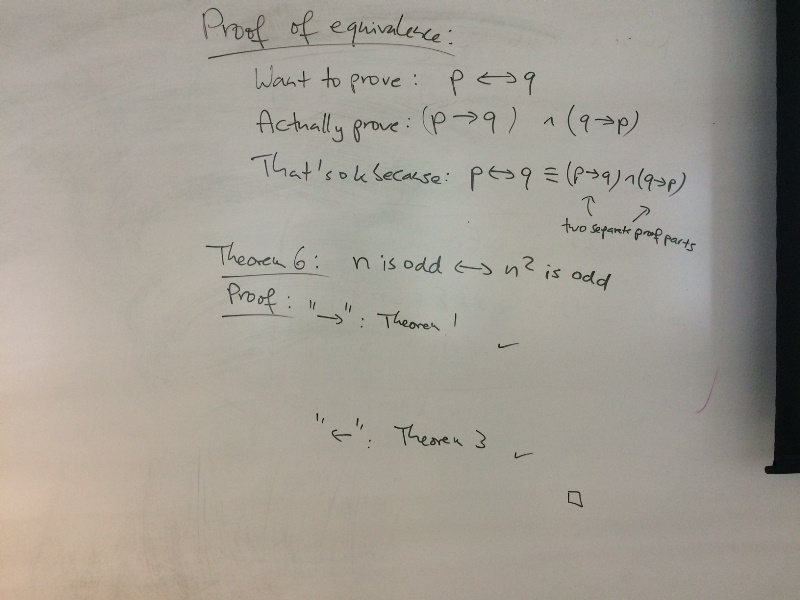 Proof of equivalence:
Want to prove: p ↔ q
Actually prove: (p → q) ∧ (q → p)
That's ok because: p ↔ q ≡ (p → q) ∧ (q → p)
two separate proof parts
Theorem 6: n is odd ↔ n² is odd
Proof: "→": Theorem 1 ✓
"←": Theorem 3 ✓
□